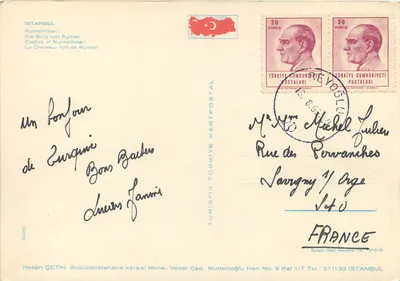 ISTANBUL
Rumelihisarı
Die Burg von Rumeli
Castles of Rumelihisarı
Le Chateau-fort de Rumeli
Un bonjour
de Turquie
Bons Baisers
TURISTIK TÜRKİYE KARTPOSTAL
30
KURUŞ
TÜRKİYE CUMHURİYETİ
POSTALARI
30
KURUŞ
TÜRKİYE CUMHURİYETİ
POSTALARI
BEYOĞLU
Mr Mme Michel Julien
Rue des Pervenches
Savigny s/ Orge
S et O
FRANCE
Hasan ÇETİN, Büyükpostahane karşısı Mimar Vedat Cad. Muhsiroğlu Han No. 9 Kat 1/7 Tel: 271192 İSTANBUL